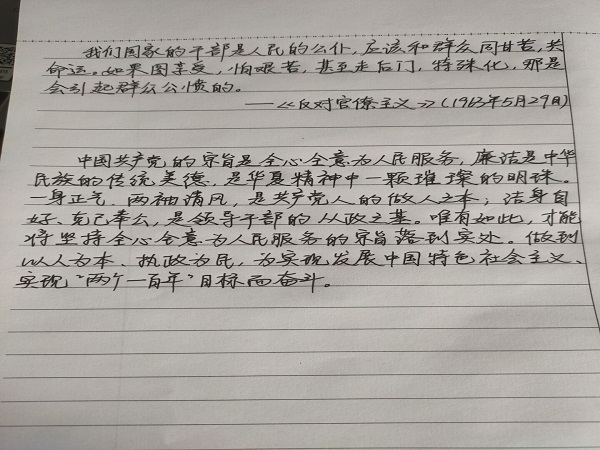 我们国家的干部是人民的公仆,应该和群众同甘苦,共
命运。如果图享受,怕艰苦,甚至走后门,特殊化,那是
会引起群众公愤的。
——《反对官僚主义》(1963年5月29日)
中国共产党的宗旨是全心全意为人民服务,廉洁是中华
民族的传统美德,是华夏精神中一颗璀璨的明珠。
一身正气、两袖清风,是共产党人的做人之本;洁身自
好、克己奉公,是领导干部的从政之基。唯有如此,才能
将坚持全心全意为人民服务的宗旨落到实处。做到
以人为本、执政为民,为实现发展中国特色社会主义、
实现“两个一百年”目标而奋斗。